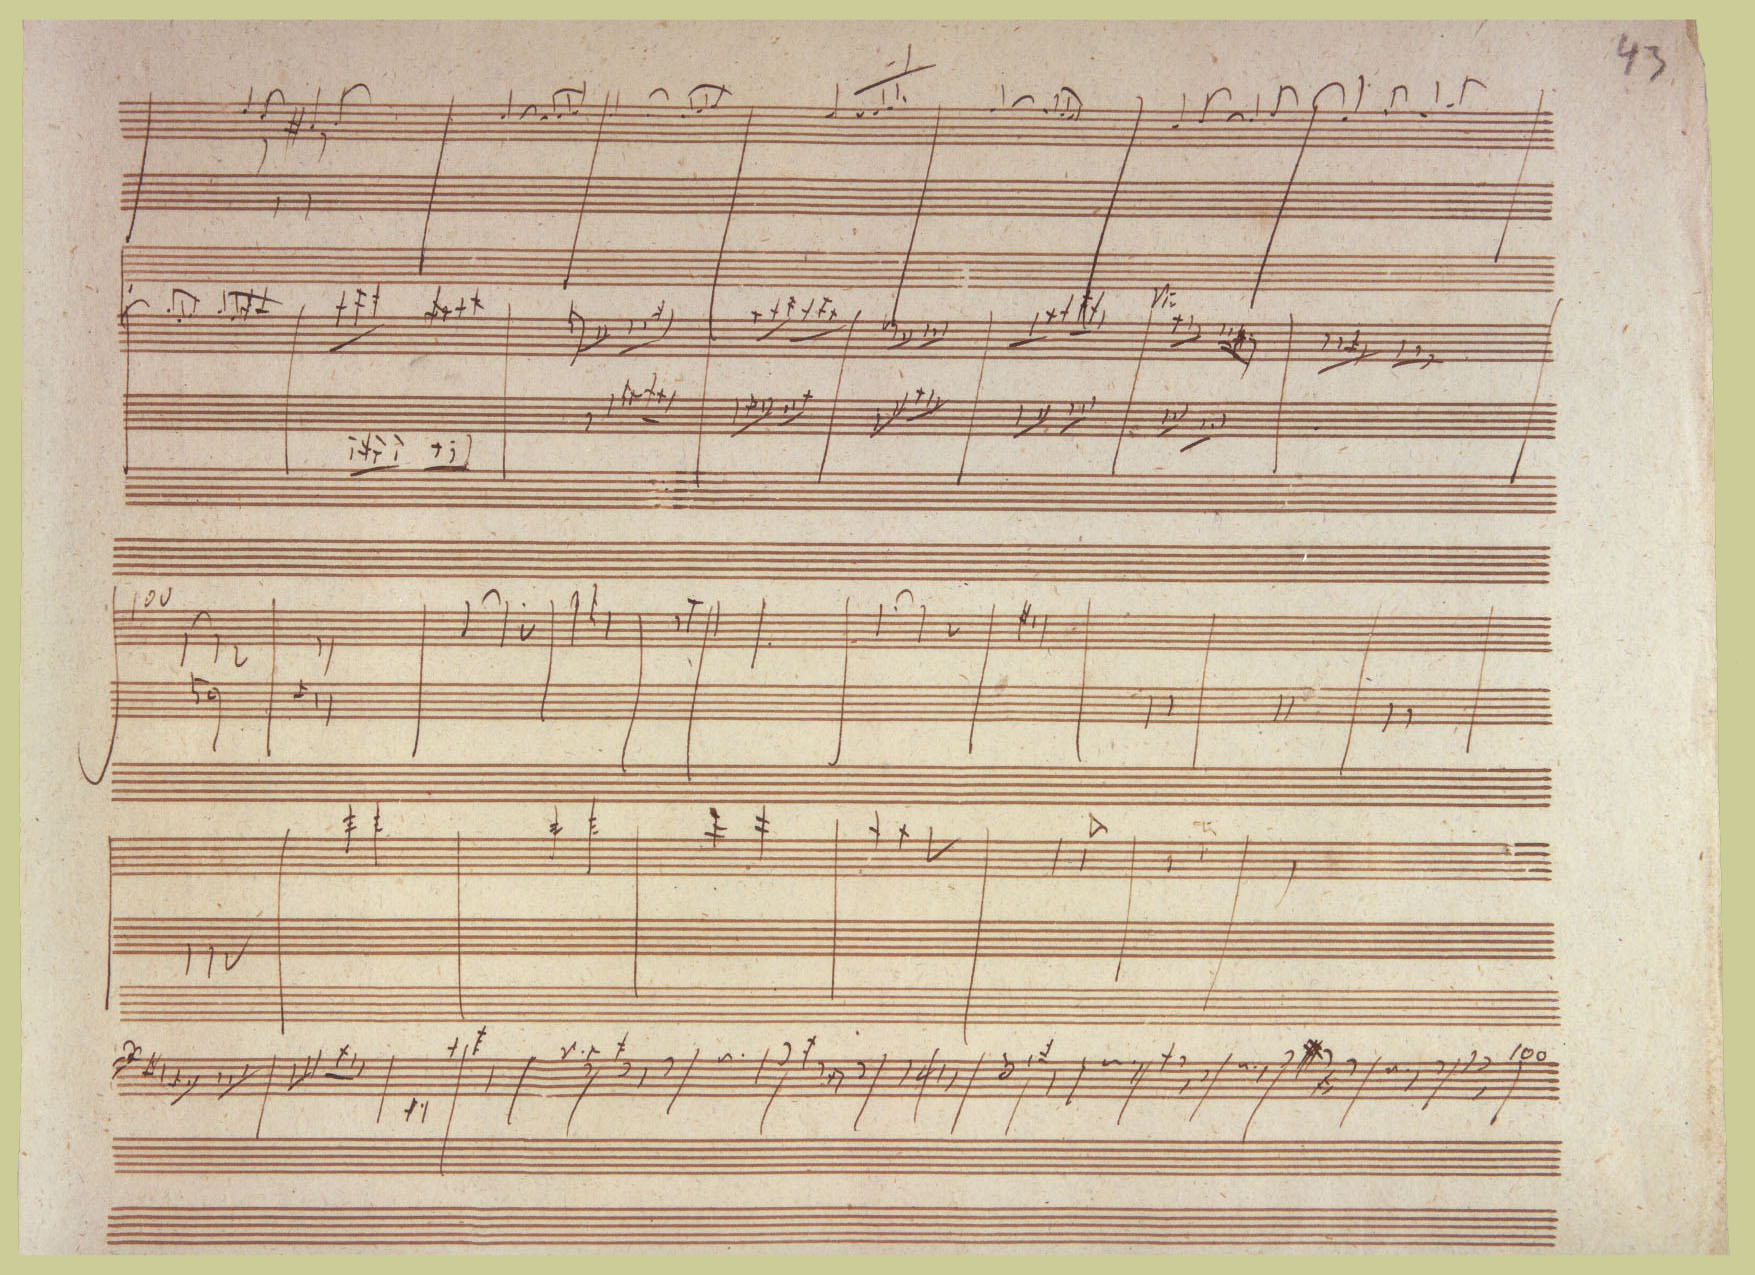 43
Vi=
100
100